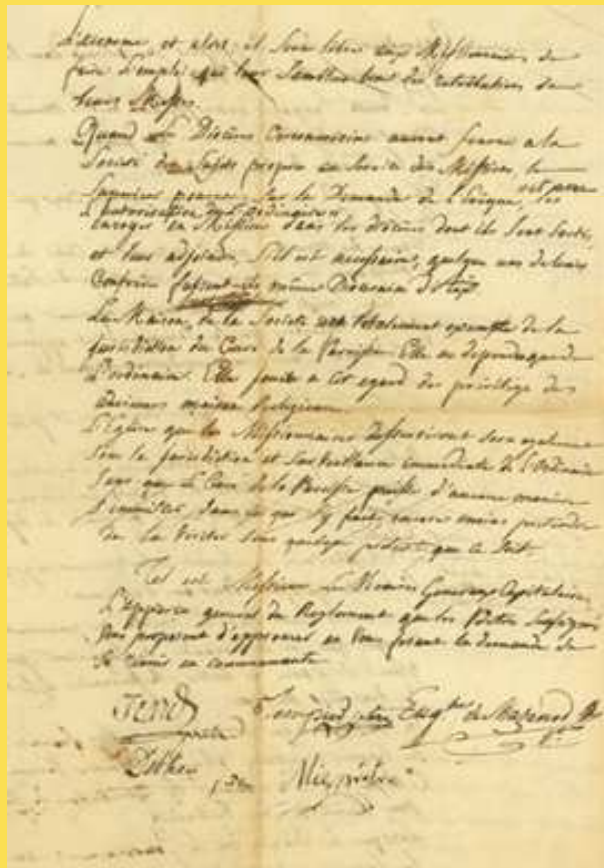 et alors il sera libre aux Missionnaires de
faire l'emploi que leur semblera bon des retributions de
leurs Messes.
Quand les Diocèses auront fourni a la
Société des Sujets propres au Service des Missions, le
Supérieur pourra, sur la Demande de l'Evêque, les
envoyer en Mission dans les diocèses dont ils sont sortis,
et leur adjoindre, s'il est nécessaire, quelques uns de leurs
Confrères
La Maison de la Société est totalement exempte de la
jurisdiction du Curé de la Paroisse. Elle ne dépendra que de
l'ordinaire. Elle jouira a cet egard des privilèges des
anciennes maisons Religieuses
L'Eglise que les Missionnaires desserviront sera egalement
sous la jurisdiction et surveillance immediate de l'Ordinaire
sans que le Curé de la Paroisse puisse d'aucune manière
s'immiscer dans ce que s'y fait, encore moins pretendre
de la visiter sous quelque prétexte que ce soit.
Tel est Messieurs les Vicaires Généraux Capitulaires,
l'apperçu general du Reglement que les Prêtres Soussignés
Vous proposent d'approuver en Vous faisant la demande de
se réunir en communauté
Eug. de Mazenod
Mie, prêtre